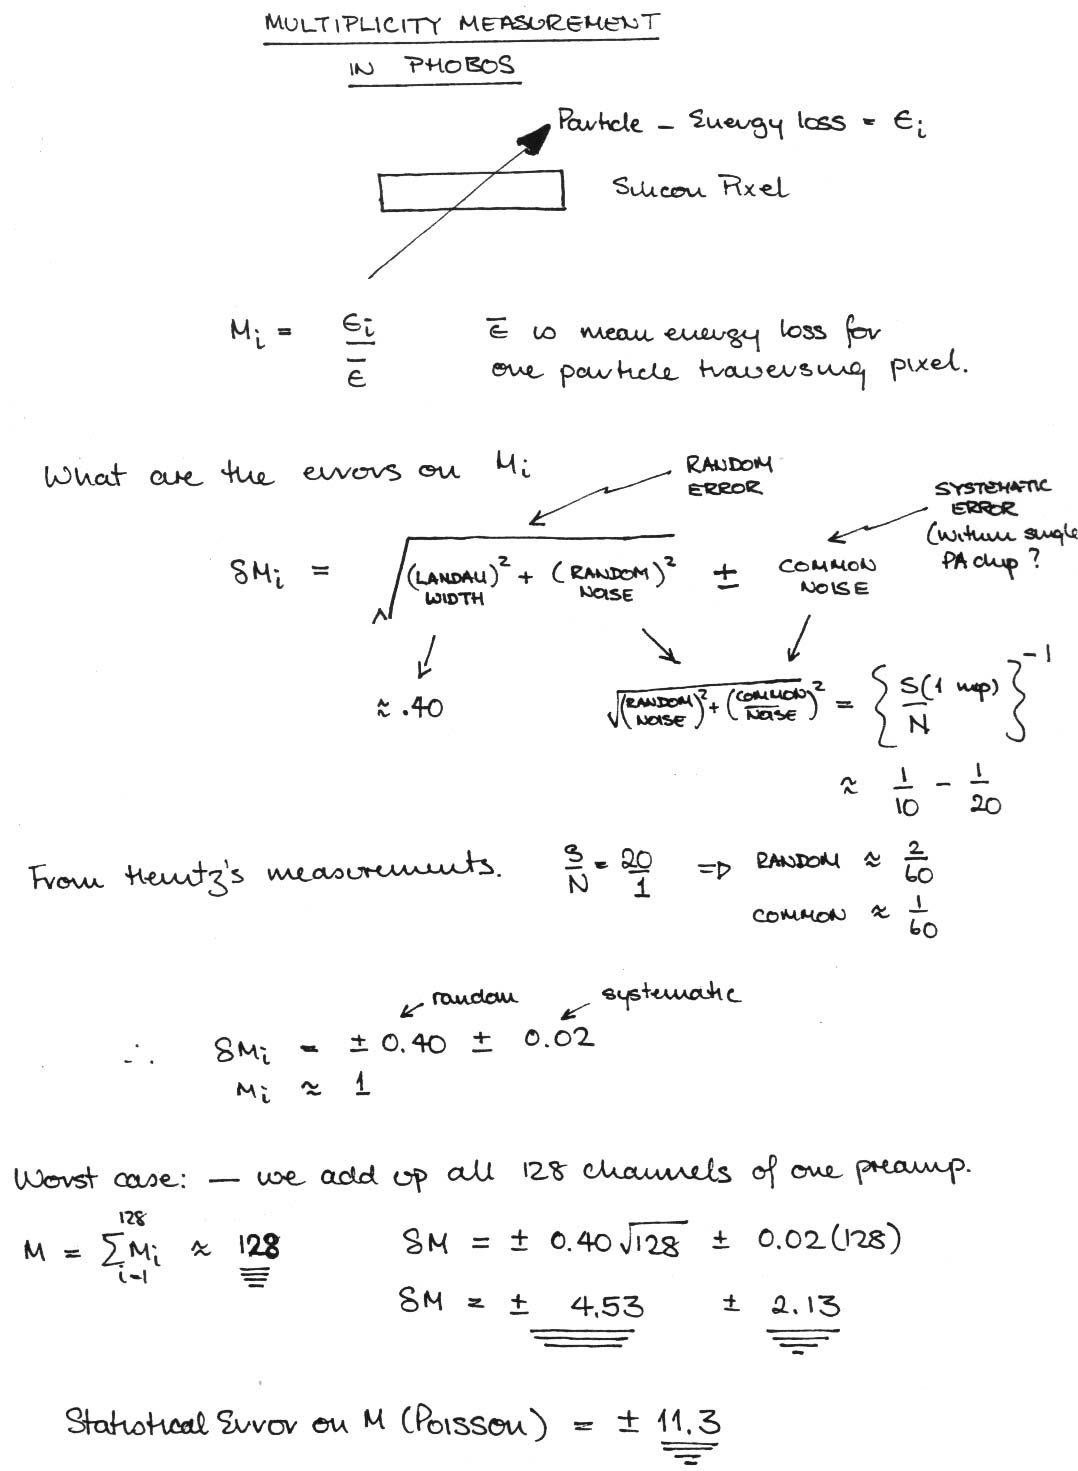 MULTIPLICITY MEASUREMENT
IN PHOBOS
Particle – Energy loss = ϵi
Silicon Pixel
Mi = ϵi / ϵ̅
ϵ̅ is mean energy loss for
one particle traversing pixel.
What are the errors on Mi
RANDOM
ERROR
SYSTEMATIC
ERROR
(within single
PA chip ?
δMi = √((LANDAU WIDTH)² + (RANDOM NOISE)²) ± COMMON NOISE
≈ .40
√((RANDOM NOISE)² + (COMMON NOISE)²) = {S(1 mip) / N}⁻¹
≈ 1/10 – 1/20
From Heintz's measurements. S/N = 20/1 ⇒ RANDOM ≈ 2/60
COMMON ≈ 1/60
random systematic
∴ δMi = ± 0.40 ± 0.02
Mi ≈ 1
Worst case: — we add up all 128 channels of one preamp.
M = ∑_{i=1}^{128} Mi ≈ 128
δM = ± 0.40 √128 ± 0.02 (128)
δM = ± 4.53 ± 2.13
Statistical Error on M (Poisson) = ± 11.3